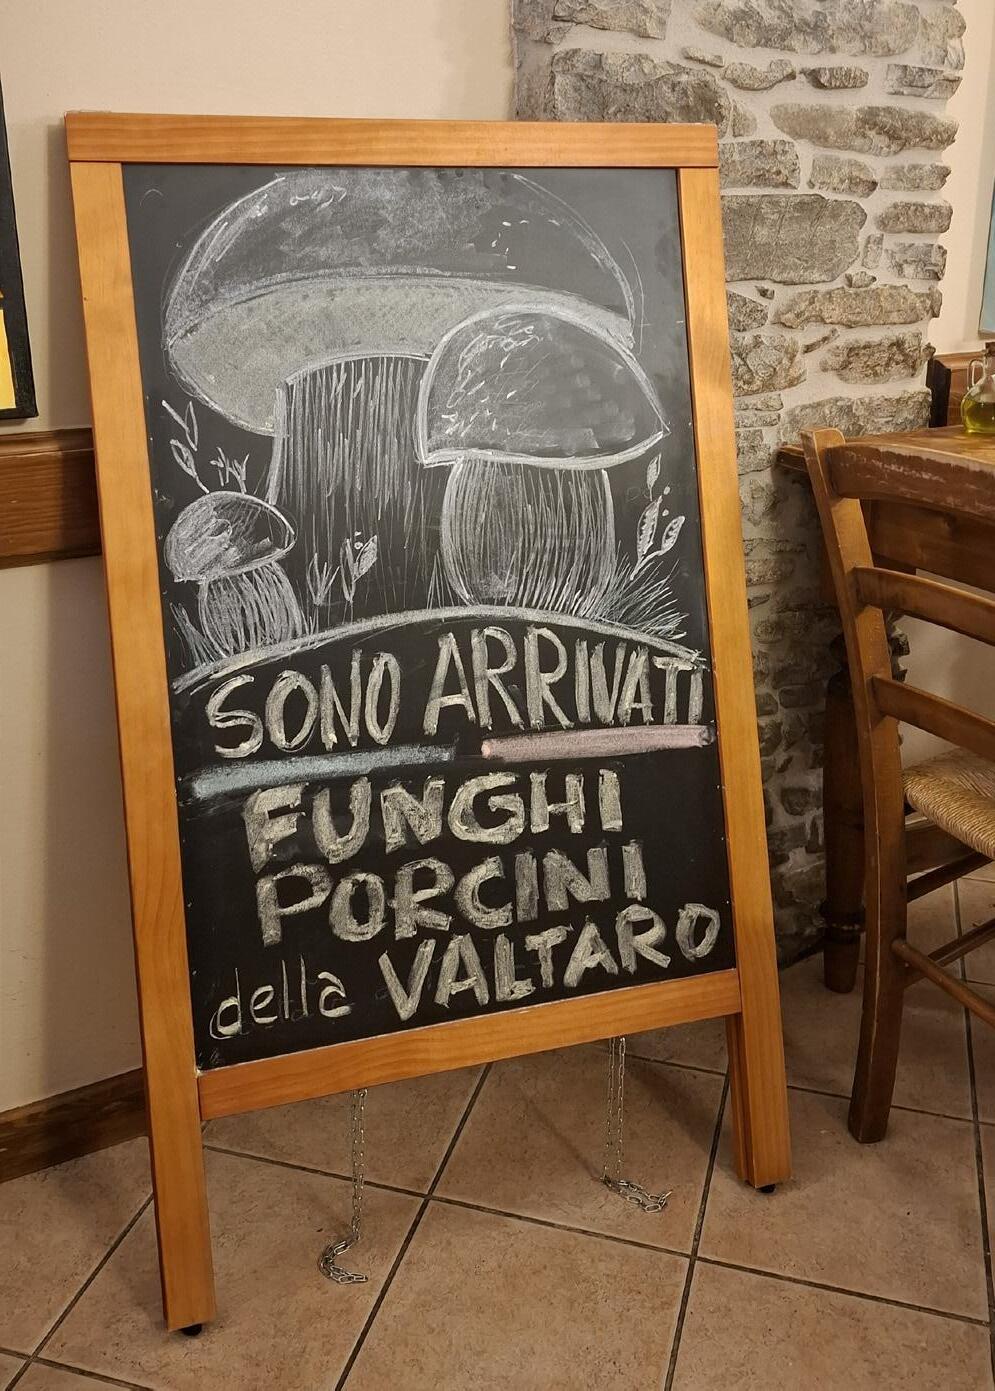 SONO ARRIVATI
FUNGHI
PORCINI
della VALTARO